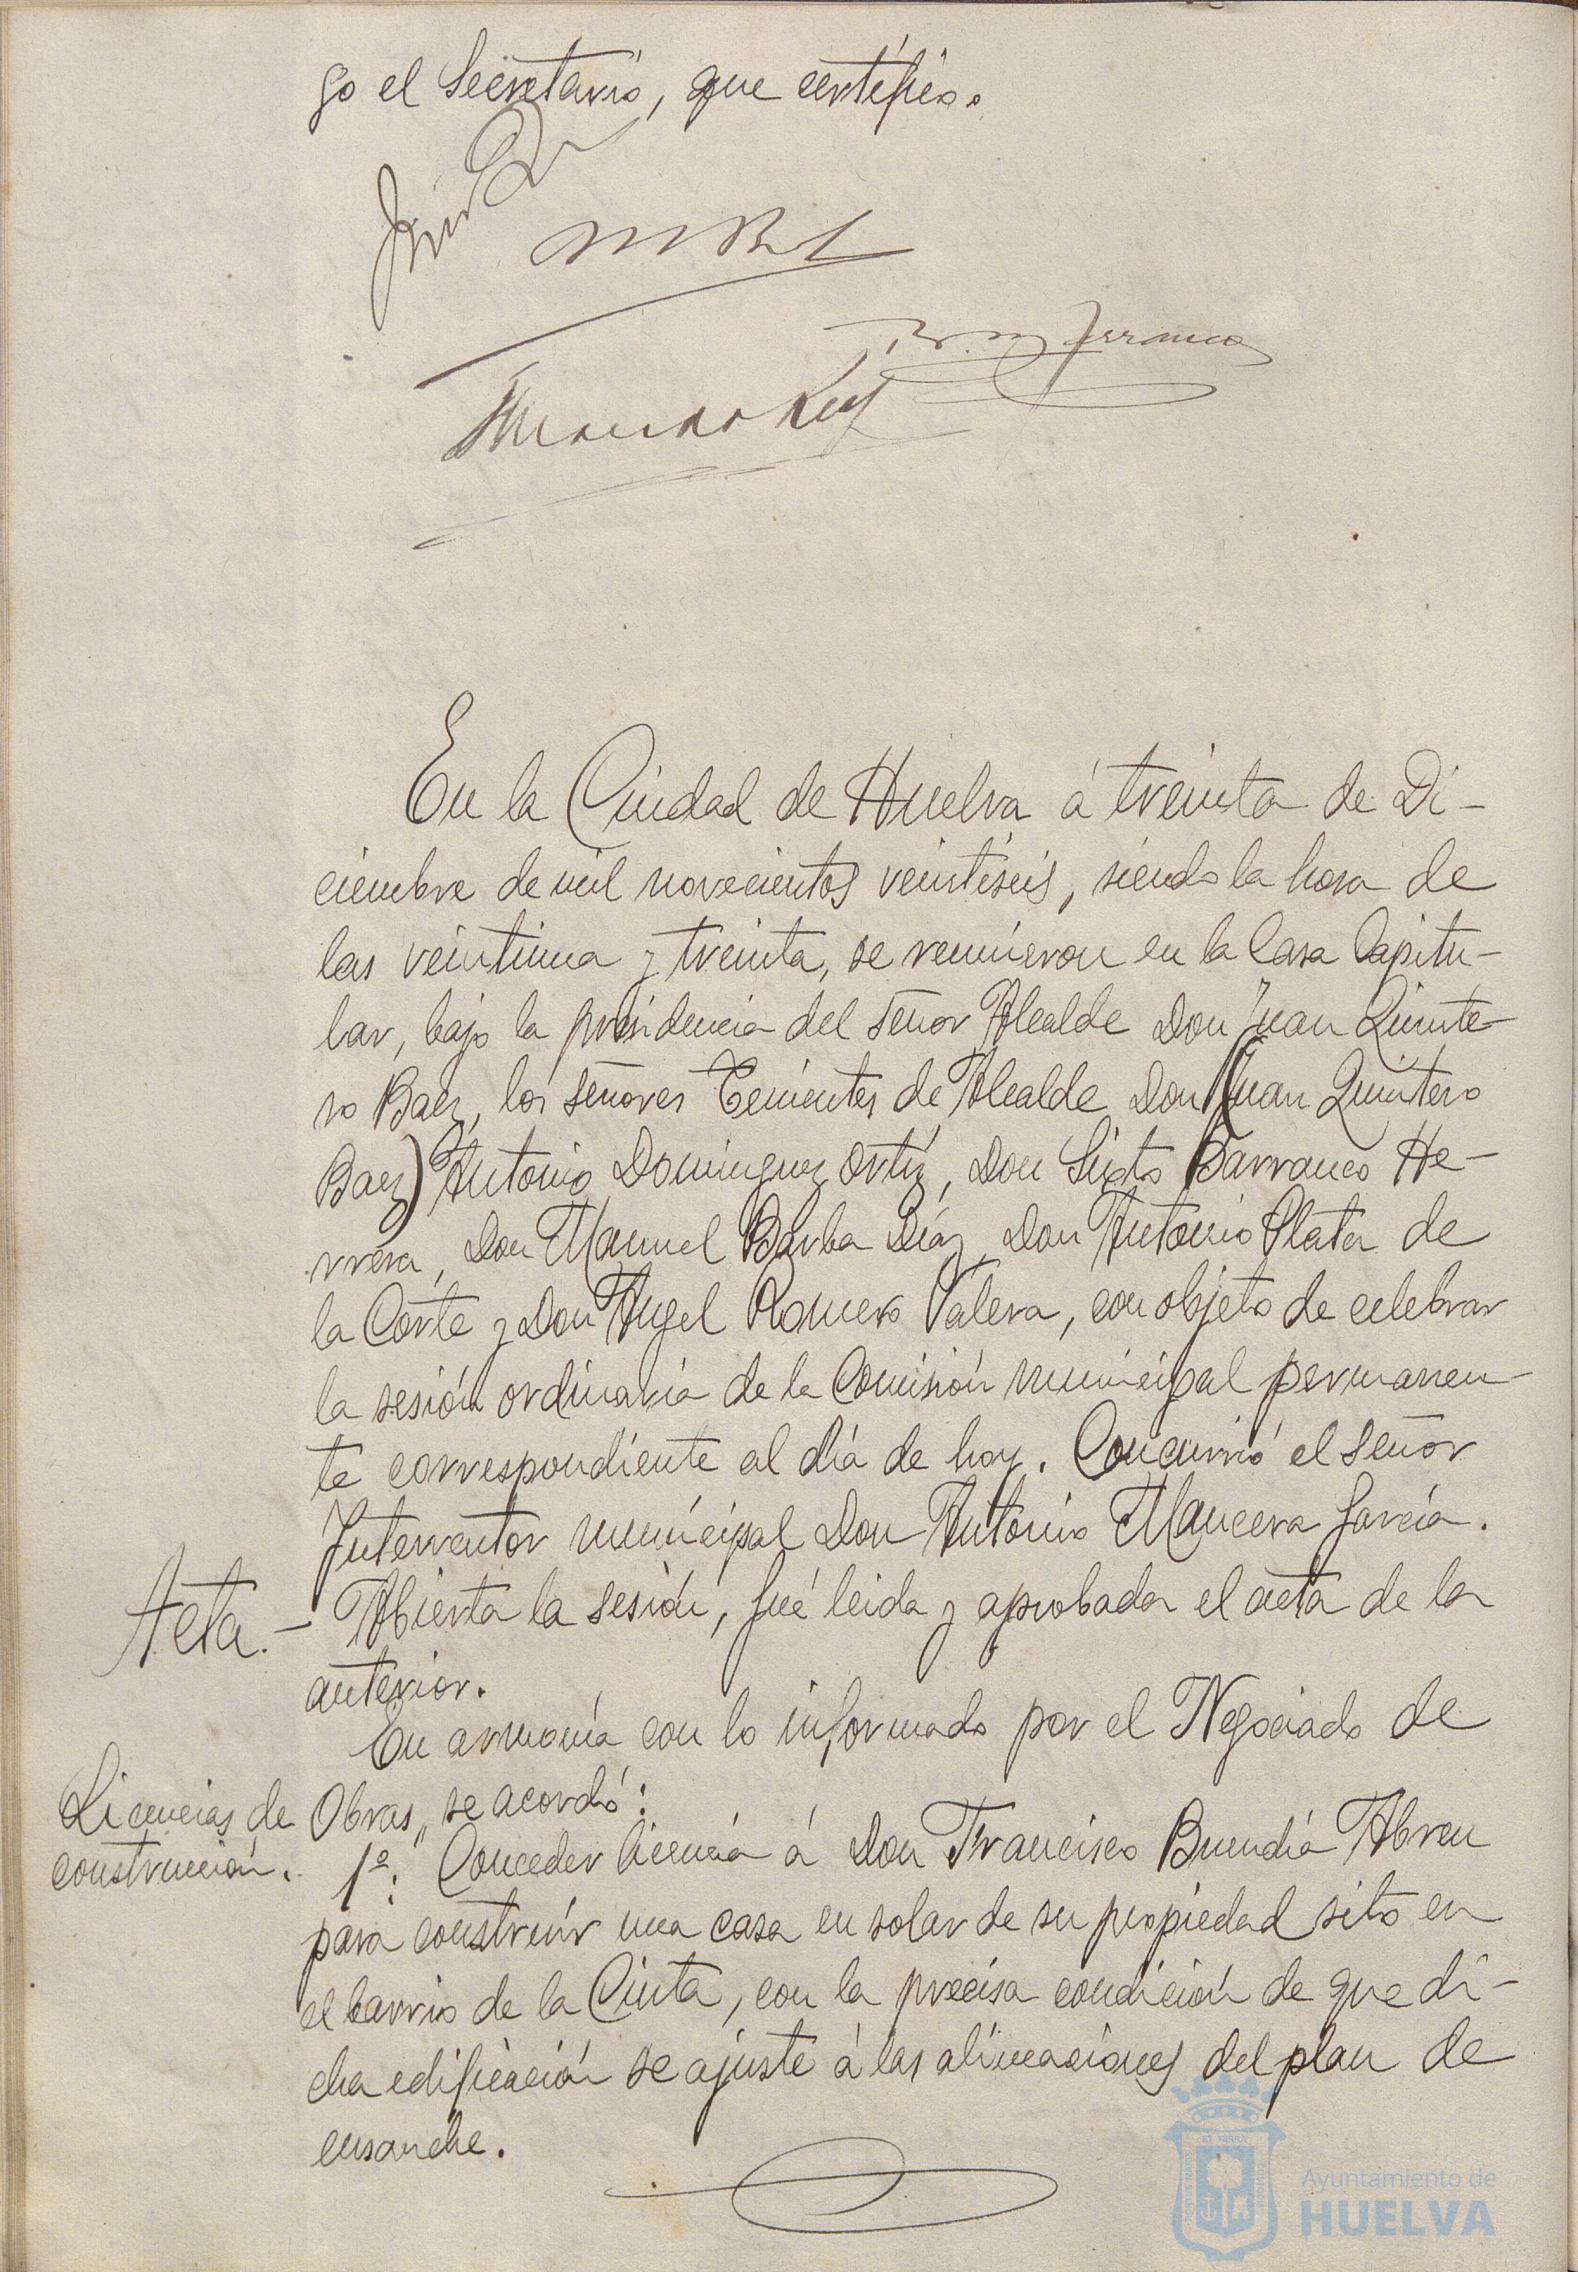 go el Secretario, que certifico.
En la Ciudad de Huelva á treinta de Di-
ciembre de mil novecientos veintiséis, siendo la hora de
las veintiuna y treinta, se reunieron en la Casa Capitu-
lar, bajo la presidencia del señor Alcalde Don Juan Quinte-
ro Baez, los señores Tenientes de Alcalde Don (Juan Quintero
Baez) Antonio Dominguez Ortiz, Don Sixto Barranco He-
rrera, Don Manuel Barba Díaz, Don Antonio Plata de
la Corte y Don Angel Romero Valera, con objeto de celebrar
la sesión ordinaria de la Comisión municipal permanen-
te correspondiente al día de hoy. Concurrió el señor
Interventor municipal Don Antonio Mancera García.
Acta.- Abierta la sesión, fué leida y aprobada el acta de la
anterior.
En armonía con lo informado por el Negociado de
Licencias de Obras, se acordó:
construcción. 1º: Conceder licencia á Don Francisco Buendía Abreu
para construír una casa en solar de su propiedad sito en
el barrio de la Cinta, con la precisa condición de que di-
cha edificación se ajuste á las alineaciones del plan de
ensanche.
Ayuntamiento de
HUELVA